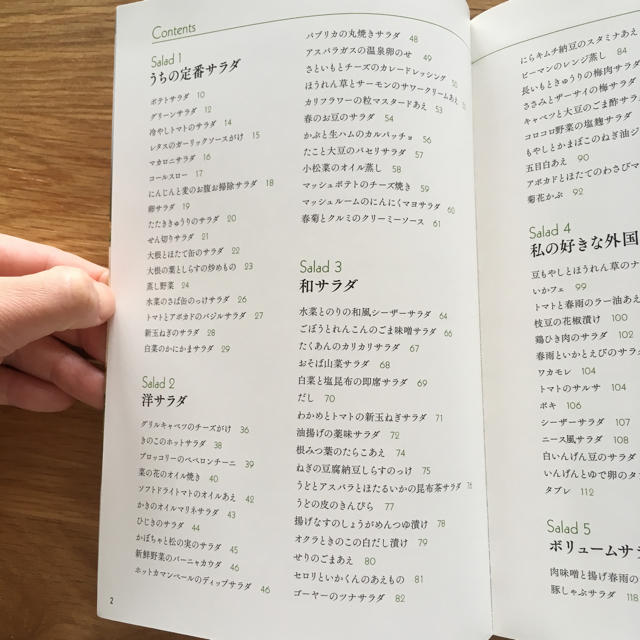 Contents
Salad 1
うちの定番サラダ
ポテトサラダ 10
グリーンサラダ 12
冷やしトマトのサラダ 14
レタスのガーリックソースがけ 15
マカロニサラダ 16
コールスロー 17
にんじんと麦のお腹お掃除サラダ 18
卵サラダ 19
たたききゅうりのサラダ 20
せん切りサラダ 21
大根とほたて缶のサラダ 22
大根の葉としらすの炒めもの 23
蒸し野菜 24
水菜のさば缶のっけサラダ 26
トマトとアボカドのバジルサラダ 27
新玉ねぎのサラダ 28
白菜のかにかまサラダ 29
Salad 2
洋サラダ
グリルキャベツのチーズがけ 36
きのこのホットサラダ 38
ブロッコリーのペペロンチーニ 39
菜の花のオイル焼き 40
ソフトドライトマトのオイルあえ 42
かきのオイルマリネサラダ 43
ひじきのサラダ 44
かぼちゃと松の実のサラダ 45
新鮮野菜のバーニャカウダ 46
ホットカマンベールのディップサラダ 46
2
パプリカの丸焼きサラダ 48
アスパラガスの温泉卵のせ 49
さといもとチーズのカレードレッシング 50
ほうれん草とサーモンのサワークリームあえ
カリフラワーの粒マスタードあえ 53
春のお豆のサラダ 54
かぶと生ハムのカルパッチョ 56
たこと大豆のパセリサラダ 57
小松菜のオイル蒸し 58
マッシュポテトのチーズ焼き 59
マッシュルームのにんにくマヨサラダ 60
春菊とクルミのクリーミーソース 61
Salad 3
和サラダ
水菜とのりの和風シーザーサラダ 64
ごぼうとれんこんのごま味噌サラダ 66
たくあんのカリカリサラダ 67
おそば山菜サラダ 68
白菜と塩昆布の即席サラダ 69
だし 70
わかめとトマトの新玉ねぎサラダ 71
油揚げの薬味サラダ 72
根みつ葉のたらこあえ 74
ねぎの豆腐納豆しらすのっけ 75
うどとアスパラとほたるいかの昆布茶サラダ 76
うどの皮のきんぴら 77
揚げなすのしょうがめんつゆ漬け 78
オクラときのこの白だし漬け 79
せりのごまあえ 80
セロリといかくんのあえもの 81
ゴーヤーのツナサラダ 82
にらキムチ納豆のスタミナあえ
ピーマンのレンジ蒸し 84
長いもときゅうりの梅肉サラダ
ささみとザーサイの梅サラダ
キャベツと大豆のごま酢サラ
コロコロ野菜の塩麹サラダ
もやしとかまぼこのねぎ油
五目白あえ 90
アボカドとほたてのわさびマ
菊花かぶ 92
Salad 4
私の好きな外国
豆もやしとほうれん草のナ
いかフェ 99
トマトと春雨のラー油あえ
枝豆の花椒漬け 100
鶏ひき肉のサラダ 102
春雨といかとえびのサラ
ワカモレ 104
トマトのサルサ 104
ポキ 106
シーザーサラダ 107
ニース風サラダ 108
白いんげん豆のサラダ
いんげんとゆで卵のタ
タブレ 112
Salad 5
ボリュームサ
肉味噌と揚げ春雨の
豚しゃぶサラダ 118